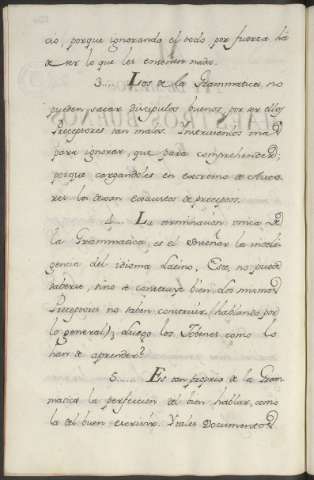 cio, porque ignorando el todo, por fuerza há
de ser lo que les enseñen nada.
3.... Los de la Grammatica, no
pueden sacar Discipulos buenos, por ser ellos
Preceptores tan malos. Instruienlos mas
para ignorar, que para comprehender,
porque cargandoles en extremo de
los dexan exhaustos de preceptos.
4.... La terminacion unica de
la Grammatica, es el enseñar la inteli-
gencia del idioma Latino. Este, no puede
saberse, sino se construye bien. Los mismos
Preceptores no saben construir (hablando por
lo general) Luego los Jobenes como lo
han de aprender?
5.... Es tan proprio de la Gram-
matica la perfeccion del bien hablar, como
la del buen escrivir. Y tales Documentos